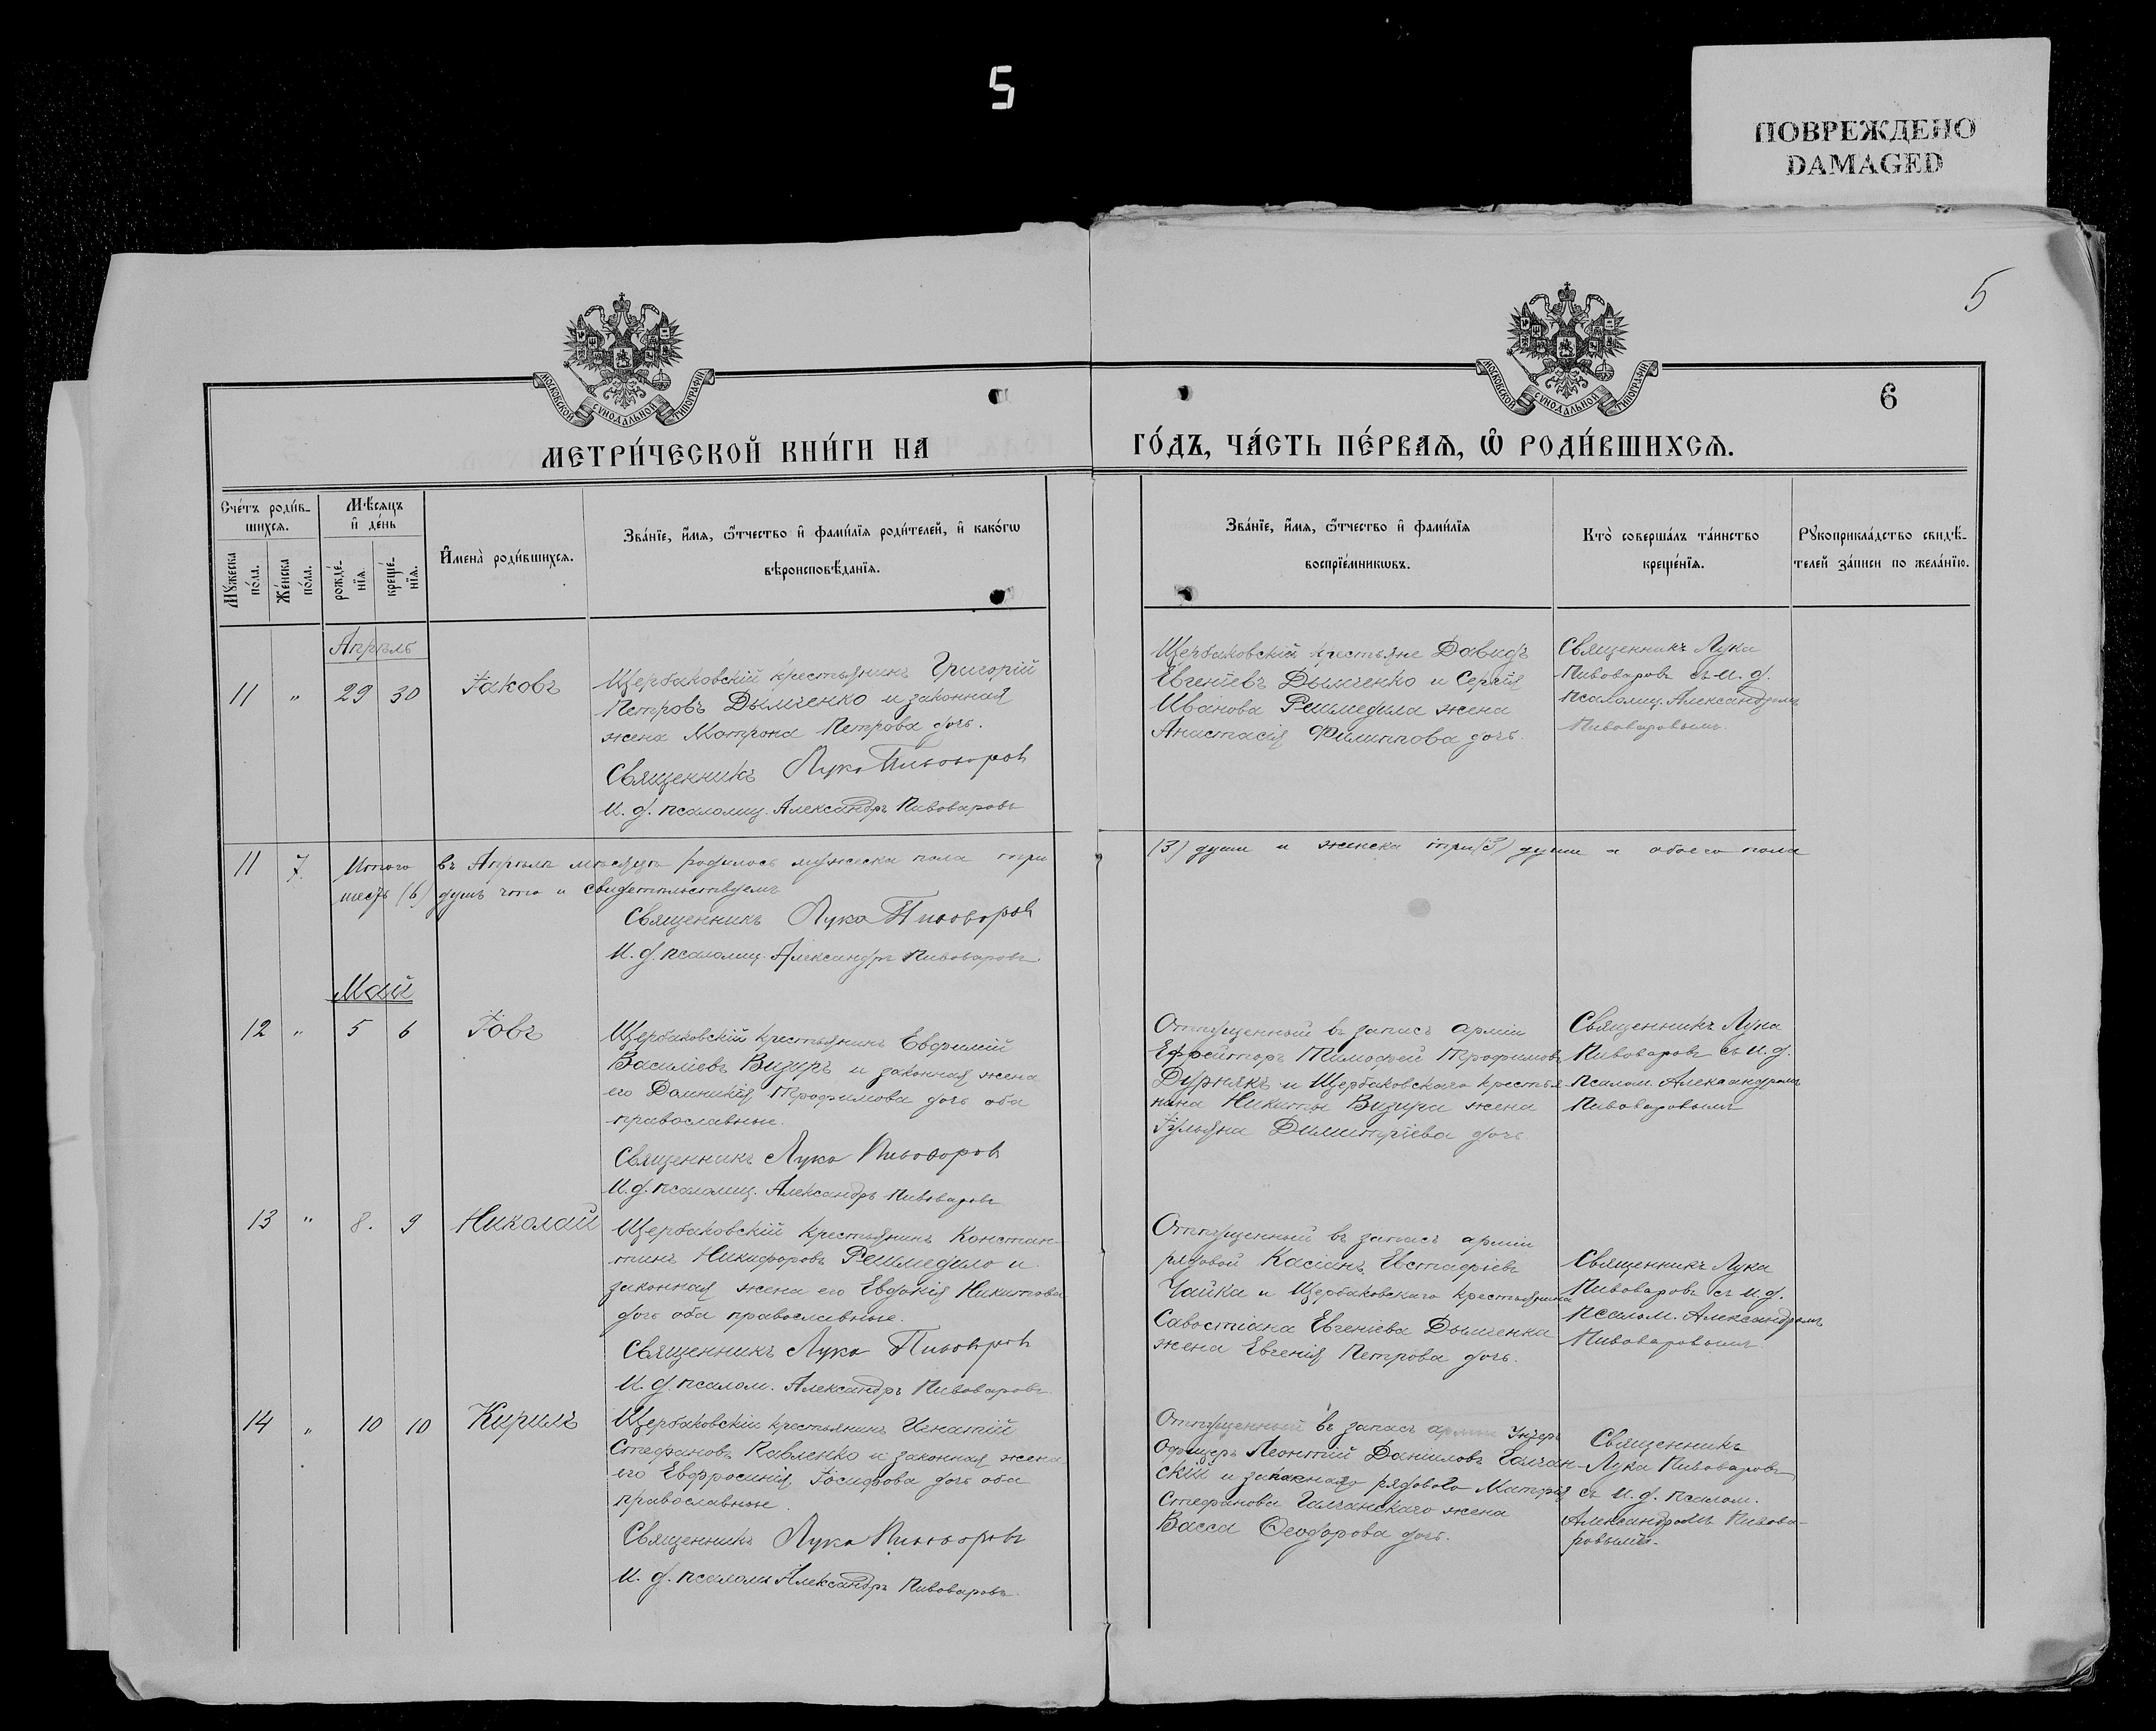 5
ПОВРЕЖДЕНО
DAMAGED
5
МОСКОВСКОЙ СѴНОДАЛЬНОЙ ТИПОГРАФІИ
МОСКОВСКОЙ СѴНОДАЛЬНОЙ ТИПОГРАФІИ
6
МЕТРИ́ЧЕСКОЙ КНИ́ГИ НА
ГО́ДЪ, ЧА́СТЬ ПЕ́РВАѦ, Ѽ РОДИ́ВШИХСѦ.
Сче́тъ роди́в-
шихсѧ.
Мꙋ́жеска
по́ла.
Же́нска
по́ла.
Мѣ́сѧцъ
и҆ де́нь
рожде́-
нїѧ.
креще́-
нїѧ.
И҆мена̀ роди́вшихсѧ.
Зва́нїе, и҆́мѧ, ѻ҆́тчество и҆ фами́лїѧ роди́телей, и҆ како́гѡ
вѣроисповѣ́данїѧ.
Зва́нїе, и҆́мѧ, ѻ҆́тчество и҆ фами́лїѧ
воспрїе́мникѡвъ.
Кто̀ соверша́лъ та́инство
креще́нїѧ.
Рꙋкоприкла́дство свидѣ́-
телей за́писи по жела́нїю.
Апрѣль
11 " 29 30 Іаковъ
Щербаковскій крестьянинъ Григорій
Петровъ Дымченко и законная
жена Матрона Петрова дочь.
Священникъ Лука Пивоваров
И. д. псаломщ. Александръ Пивоваровъ
Щербаковскіи крестьяне Давидъ
Евгеніевъ Дымченко и Сергія
Иванова Решмедила жена
Анастасія Филиппова дочь.
Священникъ Лука
Пивоваровъ съ И. д.
псаломщ. Александромъ
Пивоваровымъ.
11 7. Итого въ Апрѣлѣ мѣсяцѣ родилось мужеска пола три
(3) души и женска три (3) души а обоего пола
шесть (6) душъ что и свидетельствуемъ
Священникъ Лука Пивоваров
И. д. псаломщ. Александръ Пивоваровъ.
Май
12 " 5 6 Іовъ
Щербаковскій крестьянинъ Евфимій
Василіевъ Визиръ и законная жена
его Домникія Трофимова дочь оба
православные.
Священникъ Лука Пивоваров
И. д. псаломщ. Александръ Пивоваровъ
Отпущенный въ запасъ арміи
Ефрейторъ Тимофей Трофимовъ
Дурнякъ и Щербаковскаго крестья-
нина Никиты Визира жена
Іульяна Димитріева дочь.
Священникъ Лука
Пивоваровъ съ И. д.
Псалом. Александромъ
Пивоваровымъ
13 " 8. 9 Николай
Щербаковскій крестьянинъ Констан-
тинъ Никифоровъ Решмедило и
законная жена его Евдокія Никитова
дочь оба православные.
Священникъ Лука Пивоваров
И. д. псалом. Александръ Пивоваровъ.
Отпущенный въ запасъ арміи
рядовой Касіанъ Евстафіевъ
Чайка и Щербаковскаго крестьянина
Савостіана Евгеніева Дымченка
жена Евгенія Петрова дочь.
Священникъ Лука
Пивоваровъ съ И. д.
Псалом. Александромъ
Пивоваровымъ.
14 " 10 10 Кирилъ
Щербаковскіи крестьянинъ Игнатій
Стефановъ Павленко и законная жена
его Евфросинія Іосифова дочь оба
православные.
Священникъ Лука Пивоваровъ
И. д. псалом. Александръ Пивоваровъ.
Отпущенный въ запасъ арміи Унтеръ
Офицеръ Леонтій Даниловъ Галчан-
скій и запаснаго рядового
Стефанова Галчанскаго жена
Васса Ѳеодорова дочь.
Священникъ
Лука Пивоваровъ
съ И. д. псалом.
Александромъ Пивова-
ровымъ.